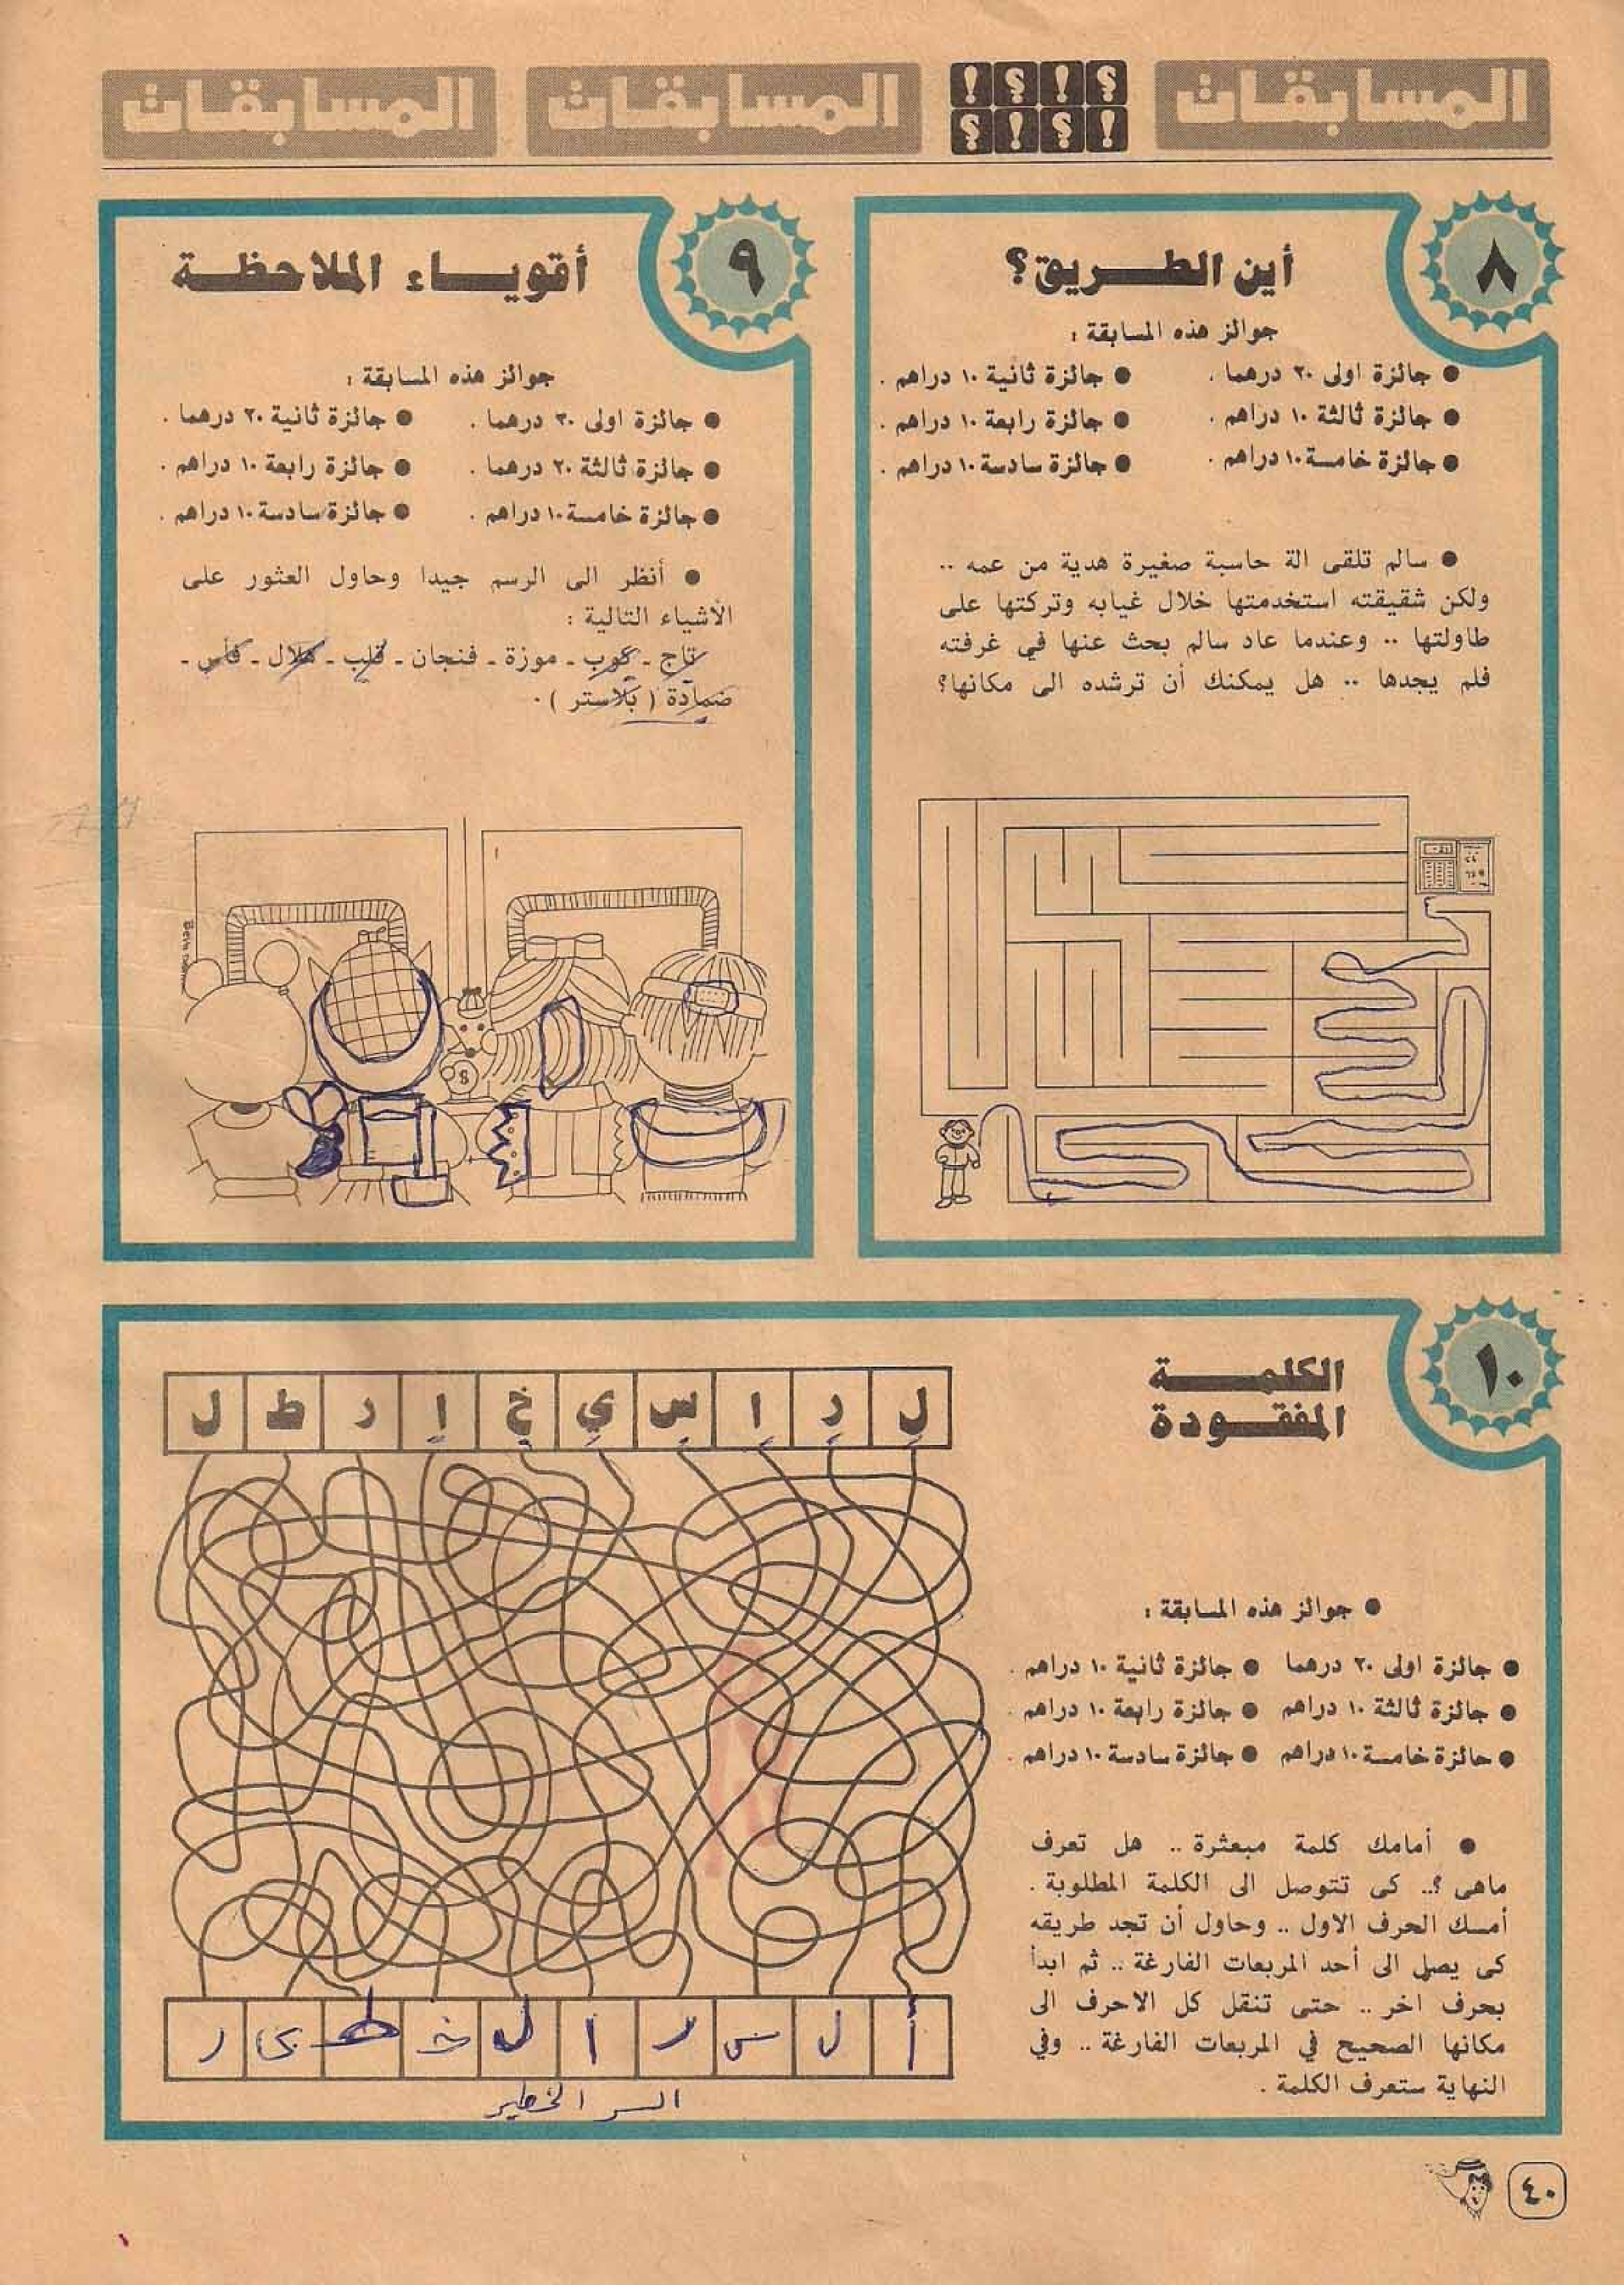 المسابقات المسابقات المسابقات
٨
أين الطريق؟
جوائز هذه المسابقة :
● جائزة اولى ٢٠ درهما . ● جائزة ثانية ١٠ دراهم .
● جائزة ثالثة ١٠ دراهم . ● جائزة رابعة ١٠ دراهم .
● جائزة خامسة ١٠ دراهم . ● جائزة سادسة ١٠ دراهم .
● سالم تلقى الة حاسبة صغيرة هدية من عمه ..
ولكن شقيقته استخدمتها خلال غيابه وتركتها على
طاولتها .. وعندما عاد سالم بحث عنها في غرفته
فلم يجدها .. هل يمكنك أن ترشده الى مكانها؟
٩
أقوياء الملاحظة
جوائز هذه المسابقة :
● جائزة اولى ٣٠ درهما . ● جائزة ثانية ٢٠ درهما .
● جائزة ثالثة ٢٠ درهما . ● جائزة رابعة ١٠ دراهم .
● جائزة خامسة ١٠ دراهم . ● جائزة سادسة ١٠ دراهم .
● أنظر الى الرسم جيدا وحاول العثور على
الأشياء التالية :
تاج - كوب - موزة - فنجان - قلب - هلال - فأس -
ضمادة ( بلاستر ) .
١٠
الكلمة
المفقودة
● جوائز هذه المسابقة :
● جائزة اولى ٢٠ درهما ● جائزة ثانية ١٠ دراهم .
● جائزة ثالثة ١٠ دراهم ● جائزة رابعة ١٠ دراهم .
● جائزة خامسة ١٠ دراهم ● جائزة سادسة ١٠ دراهم .
● أمامك كلمة مبعثرة .. هل تعرف
ماهى ؟.. كى تتوصل الى الكلمة المطلوبة .
أمسك الحرف الاول .. وحاول أن تجد طريقه
كى يصل الى أحد المربعات الفارغة .. ثم ابدأ
بحرف اخر .. حتى تنقل كل الاحرف الى
مكانها الصحيح في المربعات الفارغة .. وفي
النهاية ستعرف الكلمة .
ل ر ا س ي خ ا ر ط ل
أ ل س ر ا ل خ ط ي ر
السر الخطير
٤٠